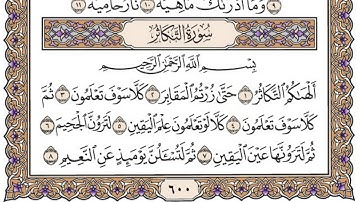 ٩ وَمَا أَدْرَىٰكَ مَا هِيَهْ ١٠ نَارٌ حَامِيَةٌ ١١
سُورَةُ التَّكَاثُرِ
بِسْمِ اللَّهِ الرَّحْمَٰنِ الرَّحِيمِ
أَلْهَىٰكُمُ التَّكَاثُرُ ١ حَتَّىٰ زُرْتُمُ الْمَقَابِرَ ٢ كَلَّا سَوْفَ تَعْلَمُونَ ٣ ثُمَّ
كَلَّا سَوْفَ تَعْلَمُونَ ٤ كَلَّا لَوْ تَعْلَمُونَ عِلْمَ الْيَقِينِ ٥ لَتَرَوُنَّ الْجَحِيمَ ٦
ثُمَّ لَتَرَوُنَّهَا عَيْنَ الْيَقِينِ ٧ ثُمَّ لَتُسْأَلُنَّ يَوْمَئِذٍ عَنِ النَّعِيمِ ٨
٦٠٠